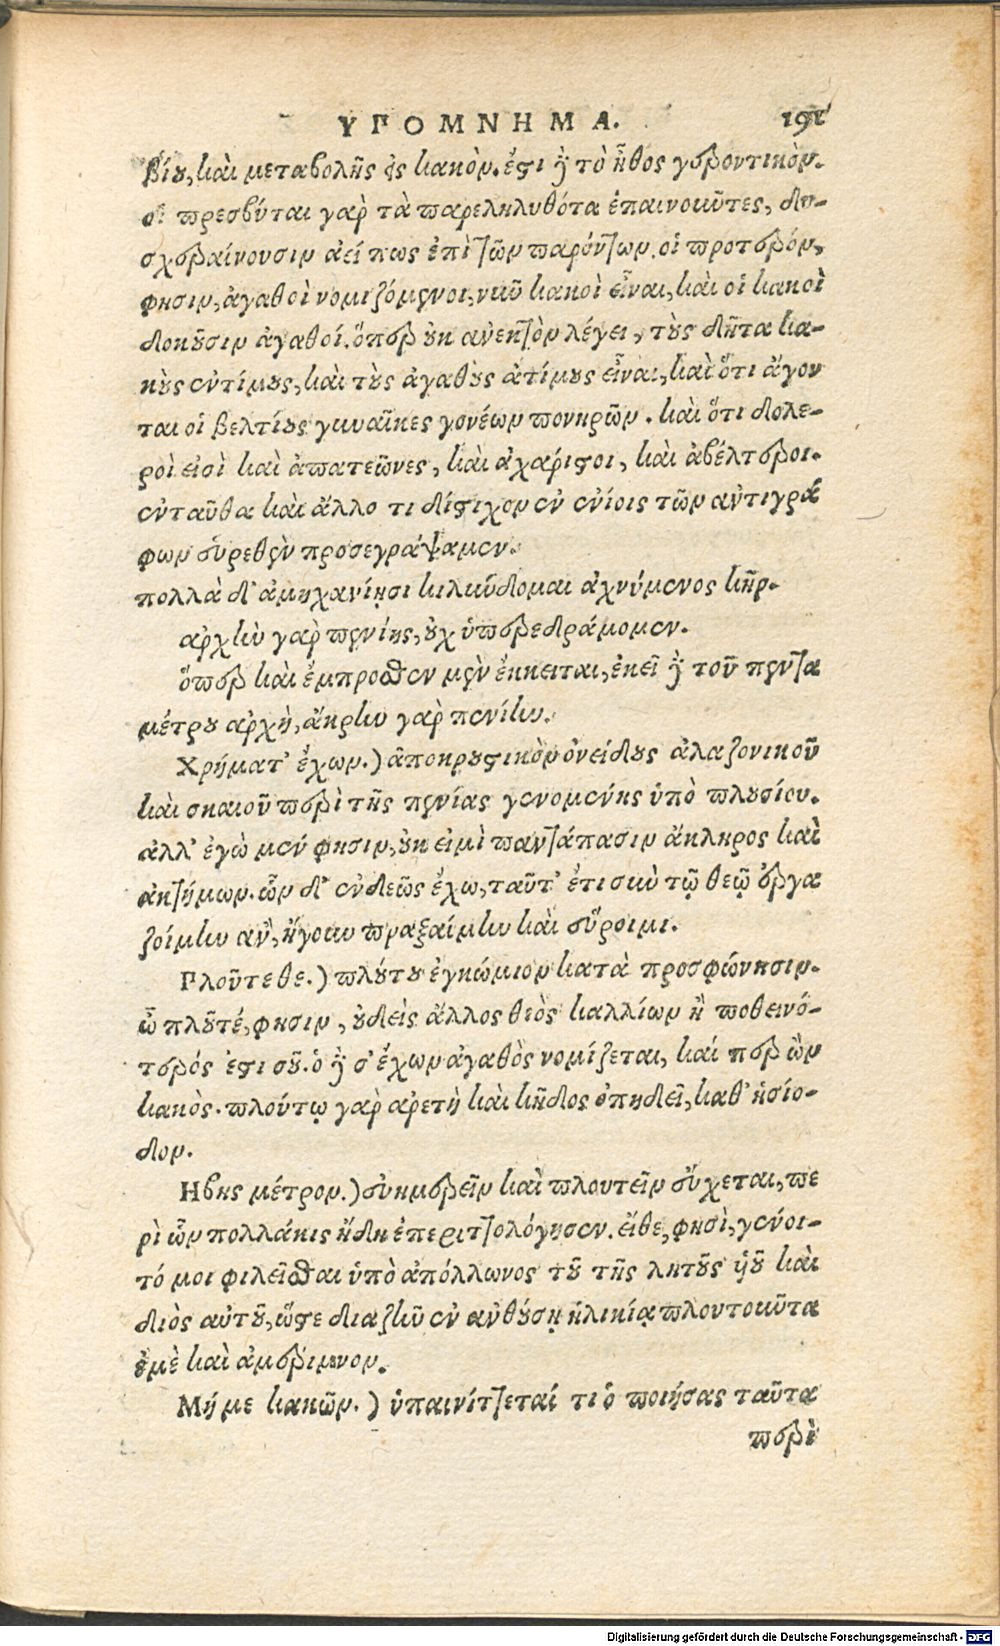 ΥΠΟΜΝΗΜΑ. 191
βίου, καὶ μεταβολῆς εἰς κακόν. ἔστι δὲ τὸ ἦθος γεροντικόν.
οἱ πρεσβύται γὰρ τὰ παρεληλυθότα ἐπαινοῦντες, δυ-
σχεραίνουσιν ἀεί πως ἐπὶ τῶν παρόντων. οἱ πρότερόν,
φησιν, ἀγαθοὶ νομιζόμενοι, νῦν κακοὶ εἶναι, καὶ οἱ κακοὶ
δοκοῦσιν ἀγαθοί. ὅπερ οὐκ ἀνεκτὸν λέγει, τοὺς δῆτα κα-
κοὺς ἐντίμους, καὶ τοὺς ἀγαθοὺς ἀτίμους εἶναι, καὶ ὅτι ἄγον
ται οἱ βελτίους γυναῖκες γονέων πονηρῶν. καὶ ὅτι δολε-
ροὶ εἰσὶ καὶ ἀπατεῶνες, καὶ ἀχάριστοι, καὶ ἀβέλτεροι.
ἐνταῦθα καὶ ἄλλο τι δίστιχον ἐν ἐνίοις τῶν ἀντιγρά
φων εὑρεθὲν προσεγράψαμεν.
πολλὰ δ' ἀμηχανίῃσι κυλίνδομαι ἀχνύμενος κῆρ.
ἀρχὴν γὰρ πενίης, οὐχ ὑπερεδράμομεν.
ὅπερ καὶ ἔμπροσθεν μὲν ἔκκειται, ἐκεῖ δὲ τοῦ πεντα
μέτρου ἀρχὴ, ἄκρην γὰρ πενίην.
Χρήματ' ἔχων.) ἀποκρουστικὸν ὀνείδους ἀλαζονικοῦ
καὶ σκαιοῦ περὶ τῆς πενίας γενομένης ὑπὸ πλουσίου.
ἀλλ' ἐγὼ μέν φησιν, οὐκ εἰμὶ παντάπασιν ἄκληρος καὶ
ἀκτήμων. ὧν δ' ἐνδεῶς ἔχω, ταῦτ' ἔτι σὺν τῷ θεῷ ἐργα
ζοίμην ἂν, ἤγουν πραξαίμην καὶ εὕροιμι.
Πλοῦτε θε.) πλούτου ἐγκώμιον κατὰ προσφώνησιν.
ὦ πλοῦτέ, φησιν, οὐδεὶς ἄλλος θεὸς καλλίων ἢ ποθεινό-
τερός ἐστι σοῦ. ὁ δὲ σ' ἔχων ἀγαθὸς νομίζεται, καί περ ὢν
κακὸς. πλούτῳ γὰρ ἀρετὴ καὶ κῦδος ὀπηδεῖ, καθ' ἡσίο-
δον.
Ηβης μέτρον.) εὐημερεῖν καὶ πλουτεῖν εὔχεται, πε
ρὶ ὧν πολλάκις ἤδη ἐπεριττολόγησεν. εἴθε, φησὶ, γένοι-
τό μοι φιλεῖσθαι ὑπὸ ἀπόλλωνος τοῦ τῆς λητοῦς υἱοῦ καὶ
διὸς αὐτοῦ, ὥστε διαζῆν ἐν ἀνθούσῃ ἡλικίᾳ πλουτοῦντα
ἐμὲ καὶ ἀμέριμνον.
Μή με κακῶν.) ὑπαινίττεταί τι ὁ ποιήσας ταῦτα
περὶ
Digitalisierung gefördert durch die Deutsche Forschungsgemeinschaft - DFG